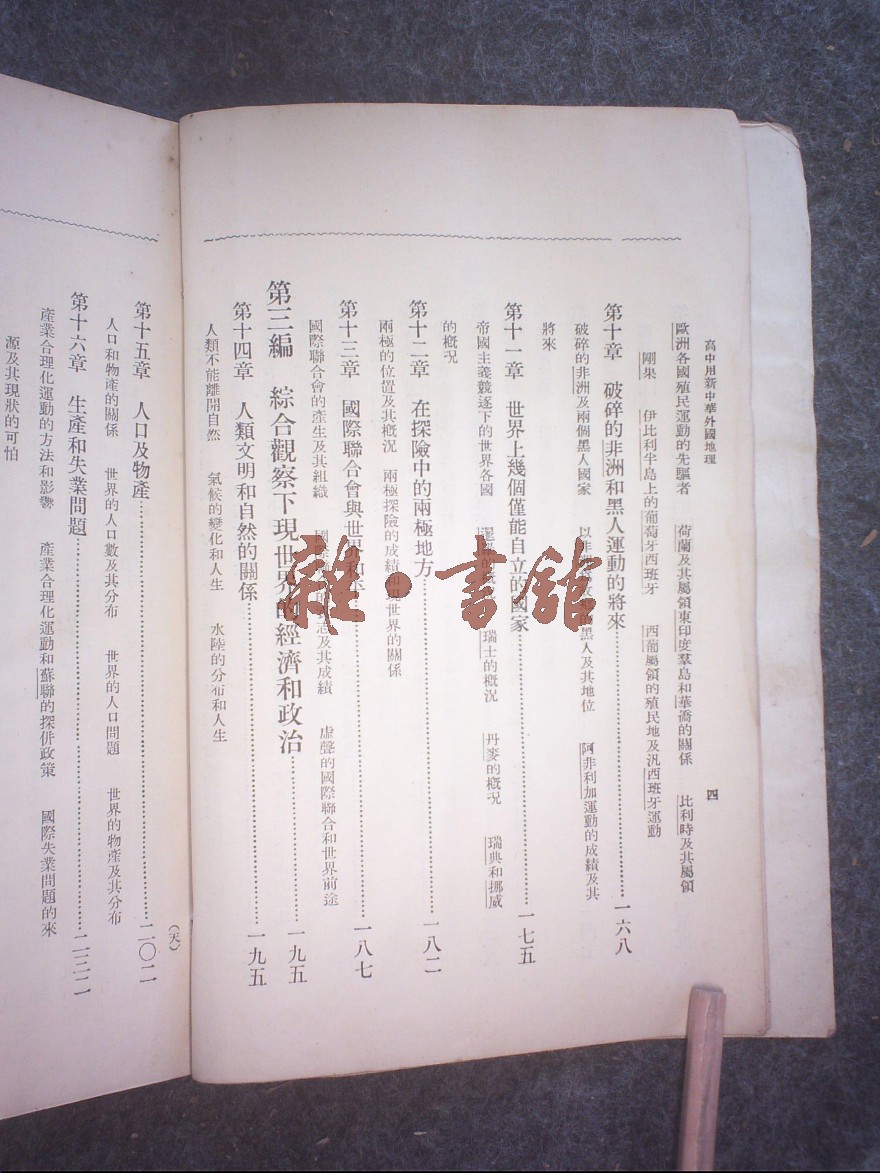 高中用新中華外國地理
四
歐洲各國殖民運動的先驅者 荷蘭及其屬領東印度羣島和華僑的關係 比利時及其屬領
剛果 伊比利半島上的葡萄牙西班牙 西葡屬領的殖民地及汎西班牙運動
第十章 破碎的非洲和黑人運動的將來……一六八
破碎的非洲及兩個黑人國家 以非 的黑人及其地位 阿非利加運動的成績及其
將來
第十一章 世界上幾個僅能自立的國家……一七五
帝國主義競逐下的世界各國 瑞士的概況 丹麥的概況 瑞典和挪威
的概況
第十二章 在探險中的兩極地方……一八二
兩極的位置及其概況 兩極探險的成績和現世界的關係
第十三章 國際聯合會與世界和……一八七
國際聯合會的產生及其組織 國際 及其成績 虛聲的國際聯合和世界前途
第三編 綜合觀察下現世界的經濟和政治……一九五
第十四章 人類文明和自然的關係……一九五
人類不能離開自然 氣候的變化和人生 水陸的分布和人生
(天)
第十五章 人口及物產……二〇二
人口和物產的關係 世界的人口數及其分布 世界的人口問題 世界的物產及其分布
第十六章 生產和失業問題……二三二
產業合理化運動的方法和影響 產業合理化運動和蘇聯的探併政策 國際失業問題的來
源及其現狀的可怕
雜·書館